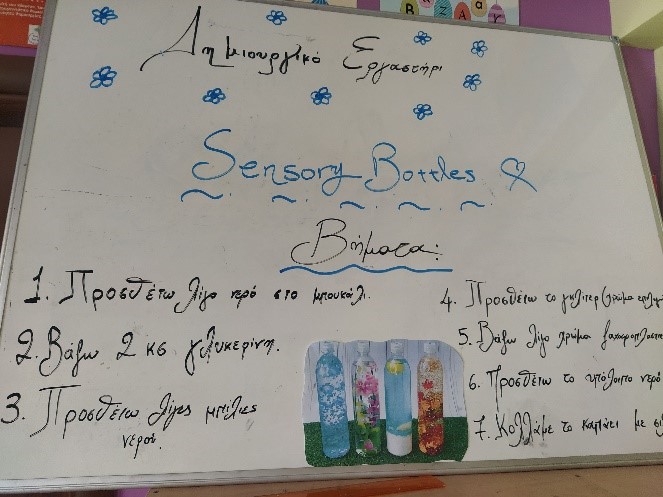 BAZAar
Δημιουργικό Εργαστήρι
Sensory Bottles
Βήματα:
1. Προσθέτω λίγο νερό στο μπουκάλι.
2. Βάζω 2 κσ γλυκερίνη.
3. Προσθέτω λίγες μπίλιες
νερού.
4. Προσθέτω το γκλίτερ (χρώμα
5. Βάζω λίγο χρώμα
6. Προσθέτω το υπόλοιπο νερό
7. Κολλάμε το καπάκι με